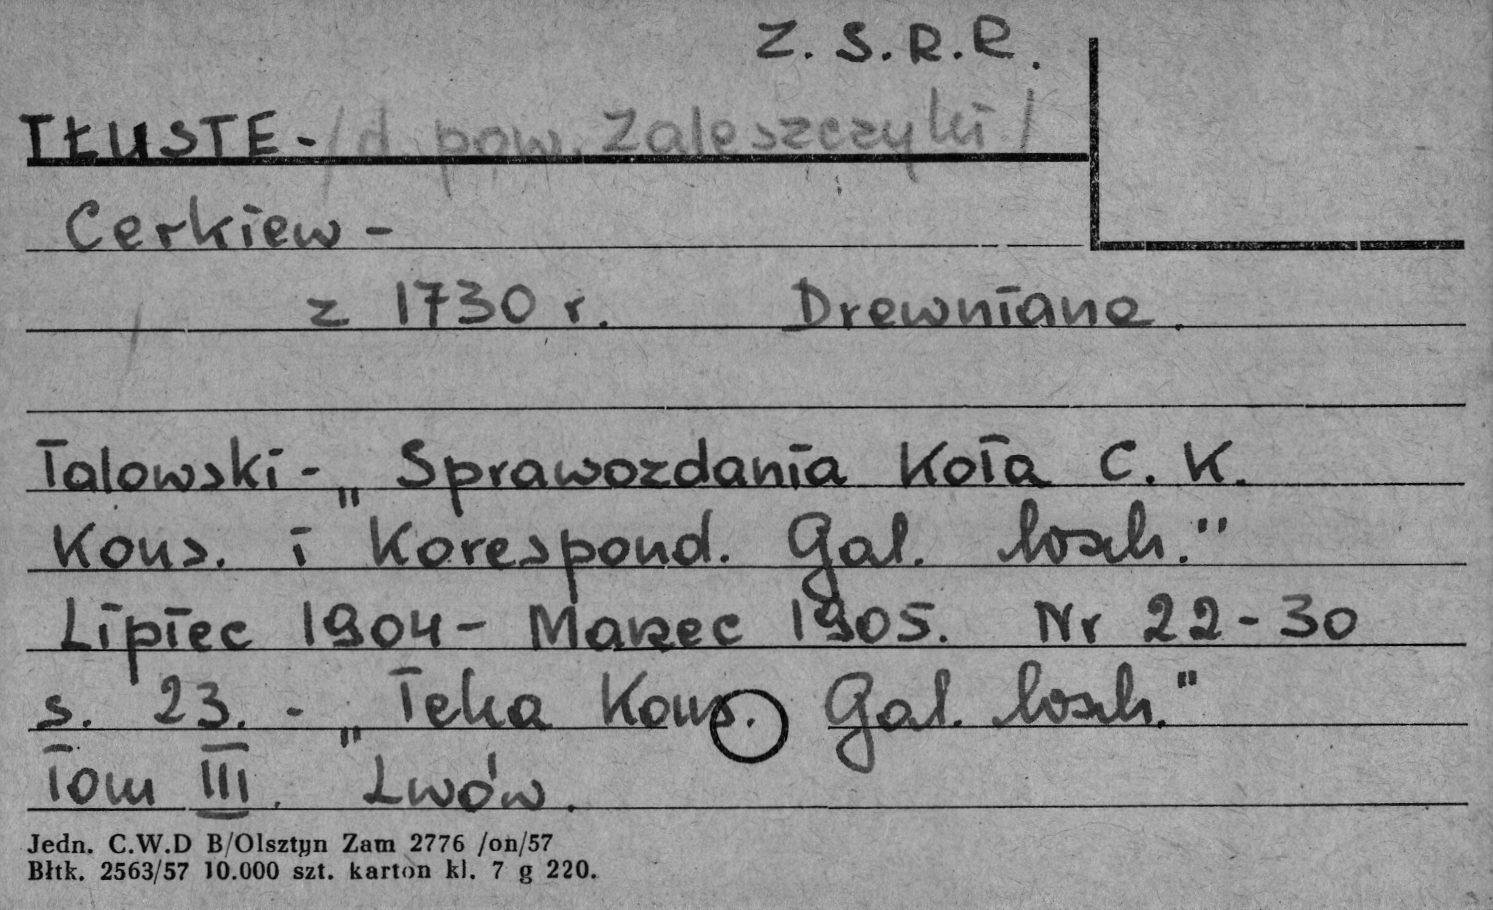 Z. S. R. R.
TŁUSTE - /d pow. Zaleszczyki/
Cerkiew -
z 1730 r. Drewniane.
Talowski - „Sprawozdania Koła C. K.
Kons. i Korespond. Gal. wsch."
Lipiec 1904 - Marzec 1905. Nr 22-30
s. 23. - „Teka Kons. Gal. wsch."
Tom III. Lwów.
Jedn. C.W.D B/Olsztyn Zam 2776 /on/57
Błtk. 2563/57 10.000 szt. karton kl. 7 g 220.